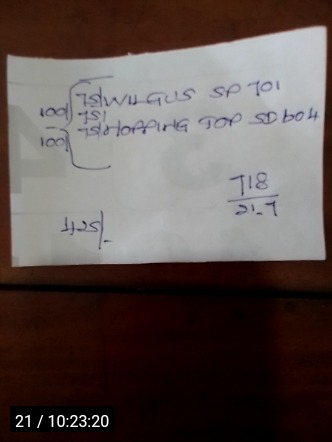 100/ 75/ WILGUS SP 701
75/
100/ 75/ HOPPING TOP SD604
718
21-7
425/-
21 / 10:23:20